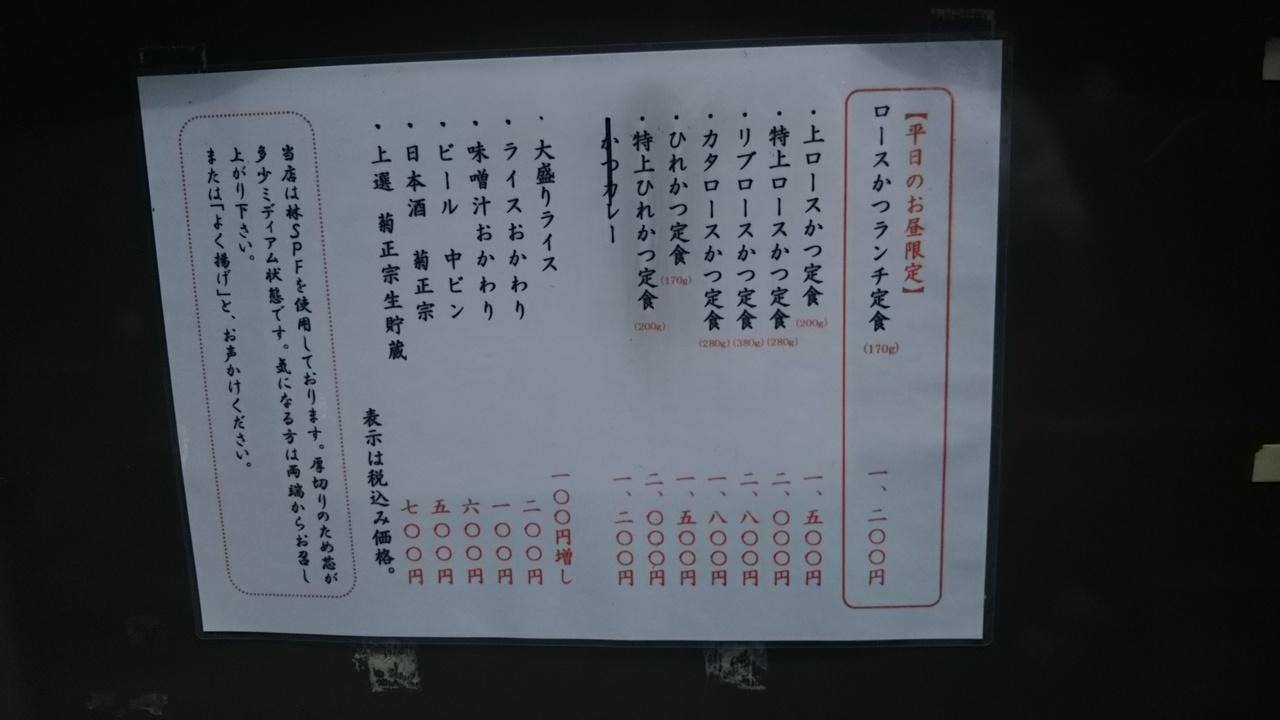 【平日のお昼限定】
ロースかつランチ定食 (170g) 一、二〇〇円
・上ロースかつ定食 (200g) 一、五〇〇円
・特上ロースかつ定食 (280g) 二、〇〇〇円
・リブロースかつ定食 (380g) 二、八〇〇円
・カタロースかつ定食 (280g) 一、八〇〇円
・ひれかつ定食 (170g) 一、五〇〇円
・特上ひれかつ定食 (200g) 二、〇〇〇円
かつカレー 一、二〇〇円
・大盛りライス 一〇〇円増し
・ライスおかわり 二〇〇円
・味噌汁おかわり 一〇〇円
・ビール 中ビン 六〇〇円
・日本酒 菊正宗 五〇〇円
・上選 菊正宗生貯蔵 七〇〇円
表示は税込み価格。
当店は林SPFを使用しております。厚切りのため芯が
多少ミディアム状態です。気になる方は両端からお召し
上がり下さい。
または「よく揚げ」と、お声かけください。